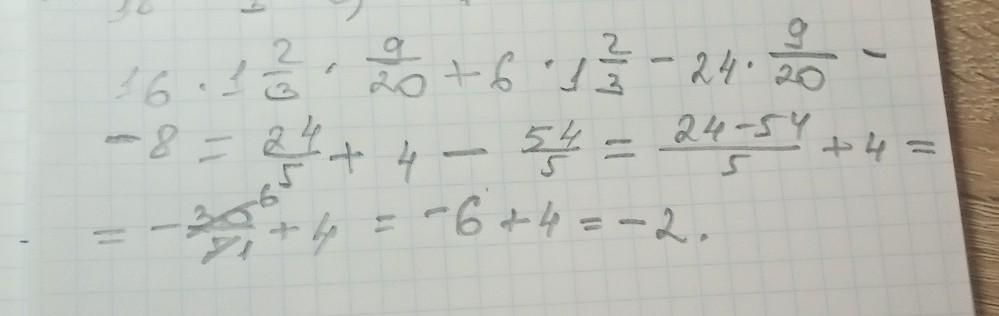 16 · 1 2/3 · 9/20 + 6 · 1 2/3 - 24 · 9/20 -
- 8 = 24/5 + 4 - 54/5 = (24-54)/5 + 4 =
= - 30 6/5 1 + 4 = -6 + 4 = -2.